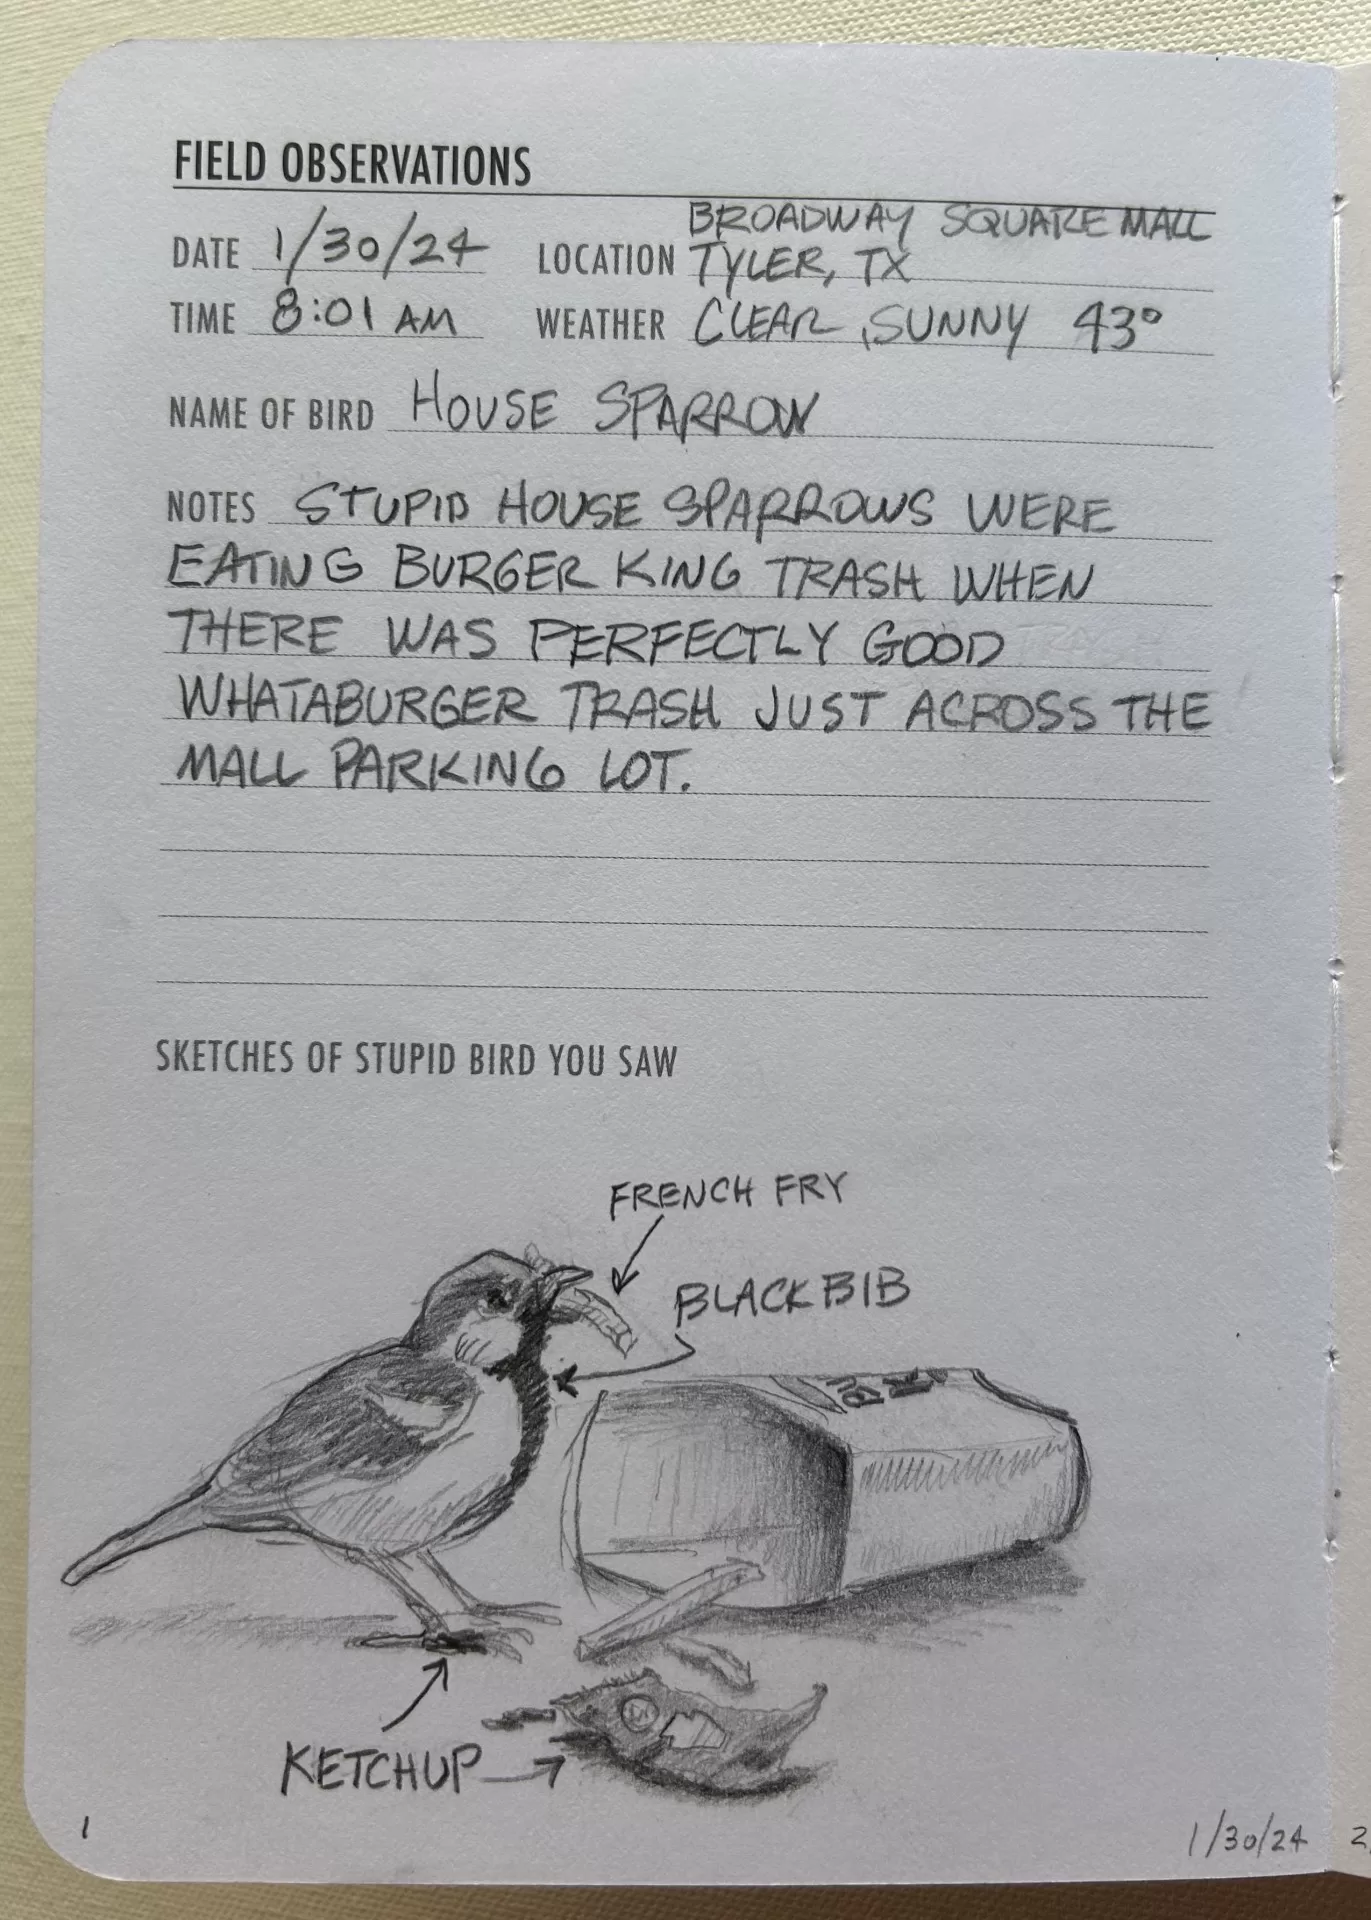 FIELD OBSERVATIONS
BROADWAY SQUARE MALL
DATE 1/30/24 LOCATION TYLER, TX
TIME 8:01 AM WEATHER CLEAR, SUNNY 43°
NAME OF BIRD HOUSE SPARROW
NOTES STUPID HOUSE SPARROWS WERE
EATING BURGER KING TRASH WHEN
THERE WAS PERFECTLY GOOD
WHATABURGER TRASH JUST ACROSS THE
MALL PARKING LOT.
SKETCHES OF STUPID BIRD YOU SAW
FRENCH FRY
BLACK BIB
KETCHUP
1
1/30/24
2